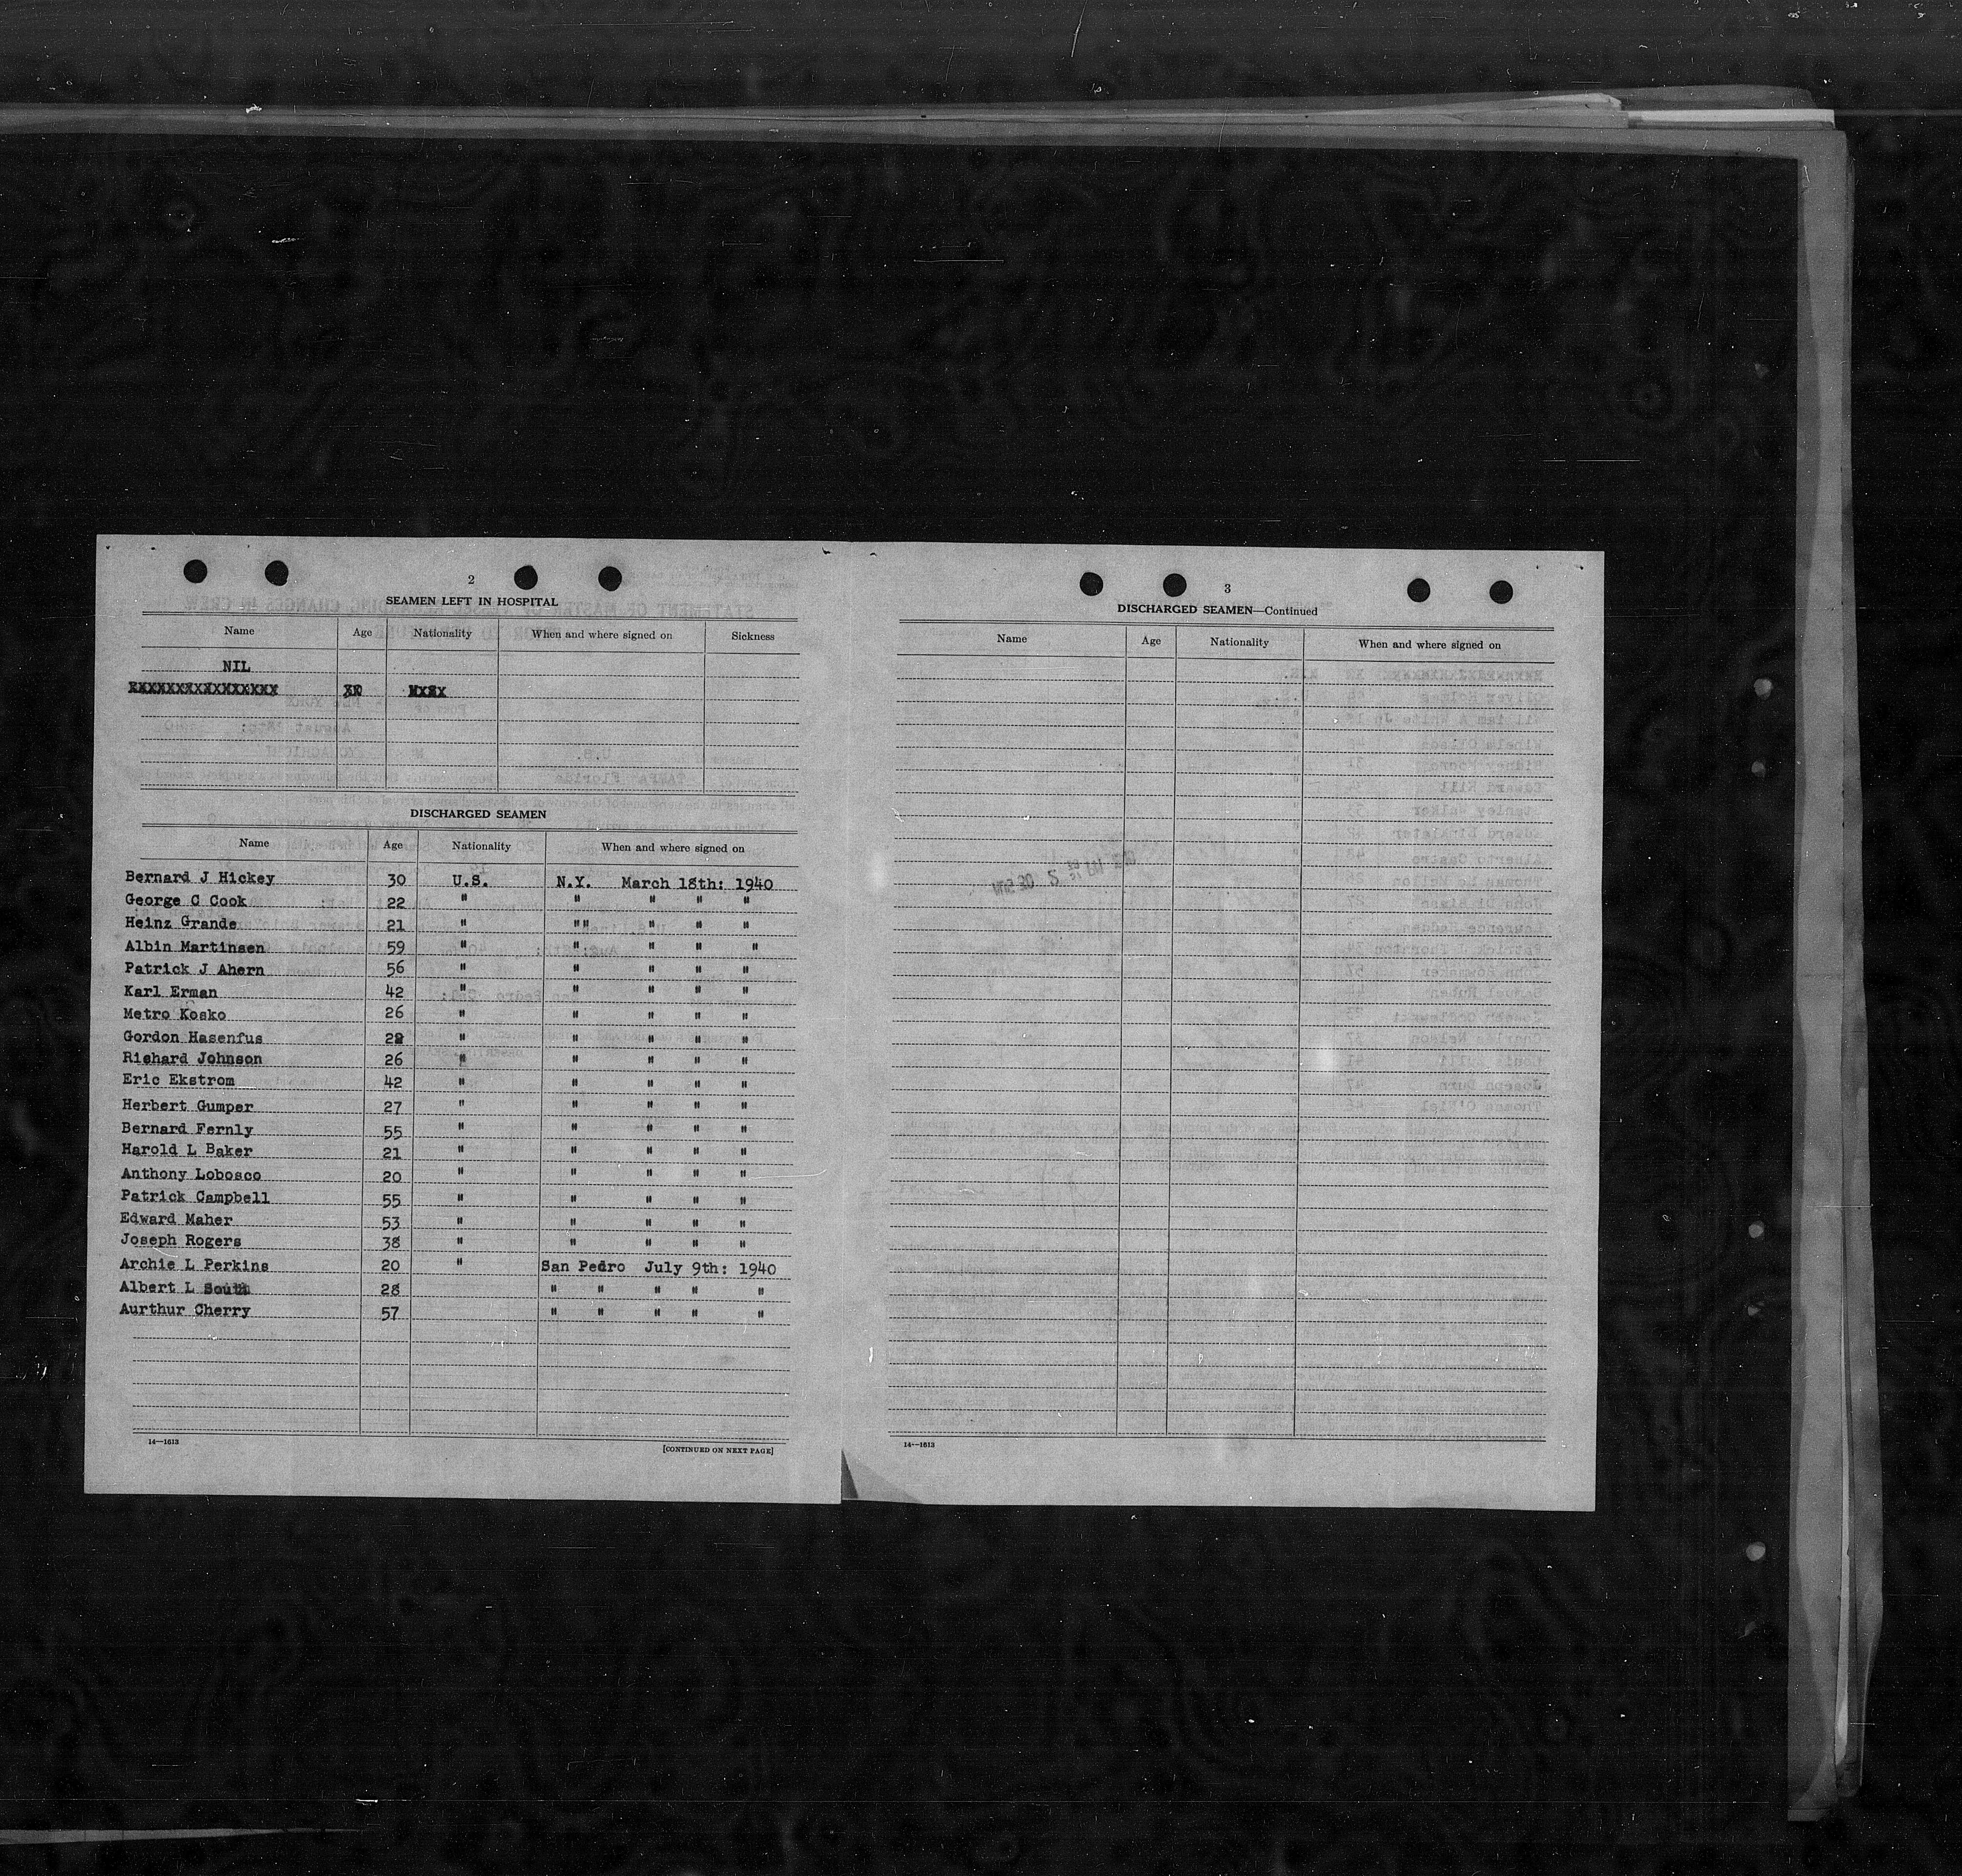 2
SEAMEN LEFT IN HOSPITAL
Name Age Nationality When and where signed on Sickness
NIL
XXXXXXXXXXXXXXXXX XX XXXX
DISCHARGED SEAMEN
Name Age Nationality When and where signed on
Bernard J Hickey 30 U.S. N.Y. March 18th: 1940
George C Cook 22 " " " " "
Heinz Grande 21 " "" " " "
Albin Martinsen 59 " " " " "
Patrick J Ahern 56 " " " " "
Karl Erman 42 " " " " "
Metro Kosko 26 " " " " "
Gordon Hasenfus 28 " " " " "
Rishard Johnson 26 " " " " "
Eric Ekstrom 42 " " " " "
Herbert Gumper 27 " " " " "
Bernard Fernly 55 " " " " "
Harold L Baker 21 " " " " "
Anthony Lobosco 20 " " " " "
Patrick Campbell 55 " " " " "
Edward Maher 53 " " " " "
Joseph Rogers 38 " " " " "
Archie L Perkins 20 " San Pedro July 9th: 1940
Albert L South 28 " " " " "
Aurthur Cherry 57 " " " " "
14—1613
[CONTINUED ON NEXT PAGE]
3
DISCHARGED SEAMEN—Continued
Name Age Nationality When and where signed on
14—1613